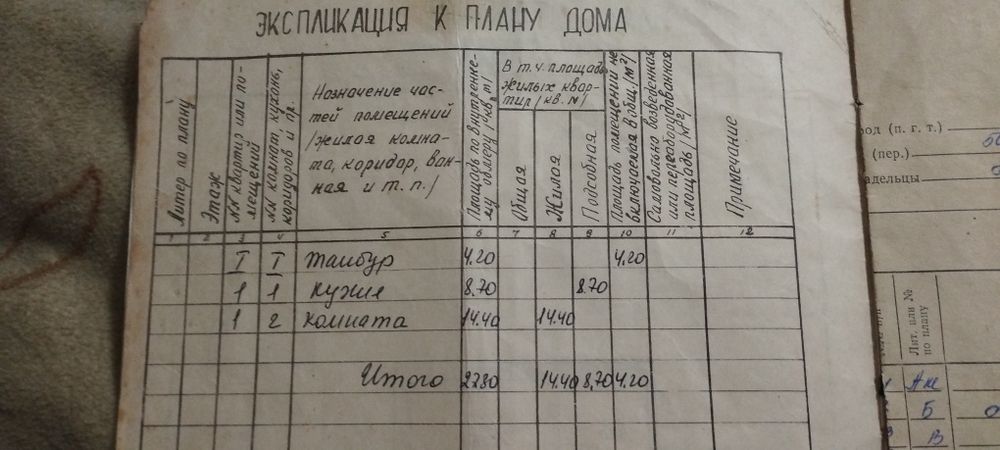 ЭКСПЛИКАЦИЯ К ПЛАНУ ДОМА
Литер по плану
Этаж
NN квартир или по-
мещений
NN комнат, кухонь,
коридоров и пр.
Назначение час-
тей помещений
/жилая комна-
та, коридор, ван-
ная и т. п./
Площадь по внутренне-
му обмеру /кв. м/
В т. ч. площадь
жилых квар-
тир /кв. м/
Общая
Жилая
Подсобная
Площадь помещений не
включаемая в общ. /м²/
Самовольно возведенная
или переоборудованная
площадь /м²/
Примечание
1 2 3 4 5 6 7 8 9 10 11 12
I I тамбур 4.20 4.20
1 1 кухня 8.70 8.70
1 2 комната 14.40 14.40
Итого 27.30 14.40 8,70 4.20
род (п. г. т.)
(пер.)
адельцы
Лит. или №
по плану
Аж
Б
В